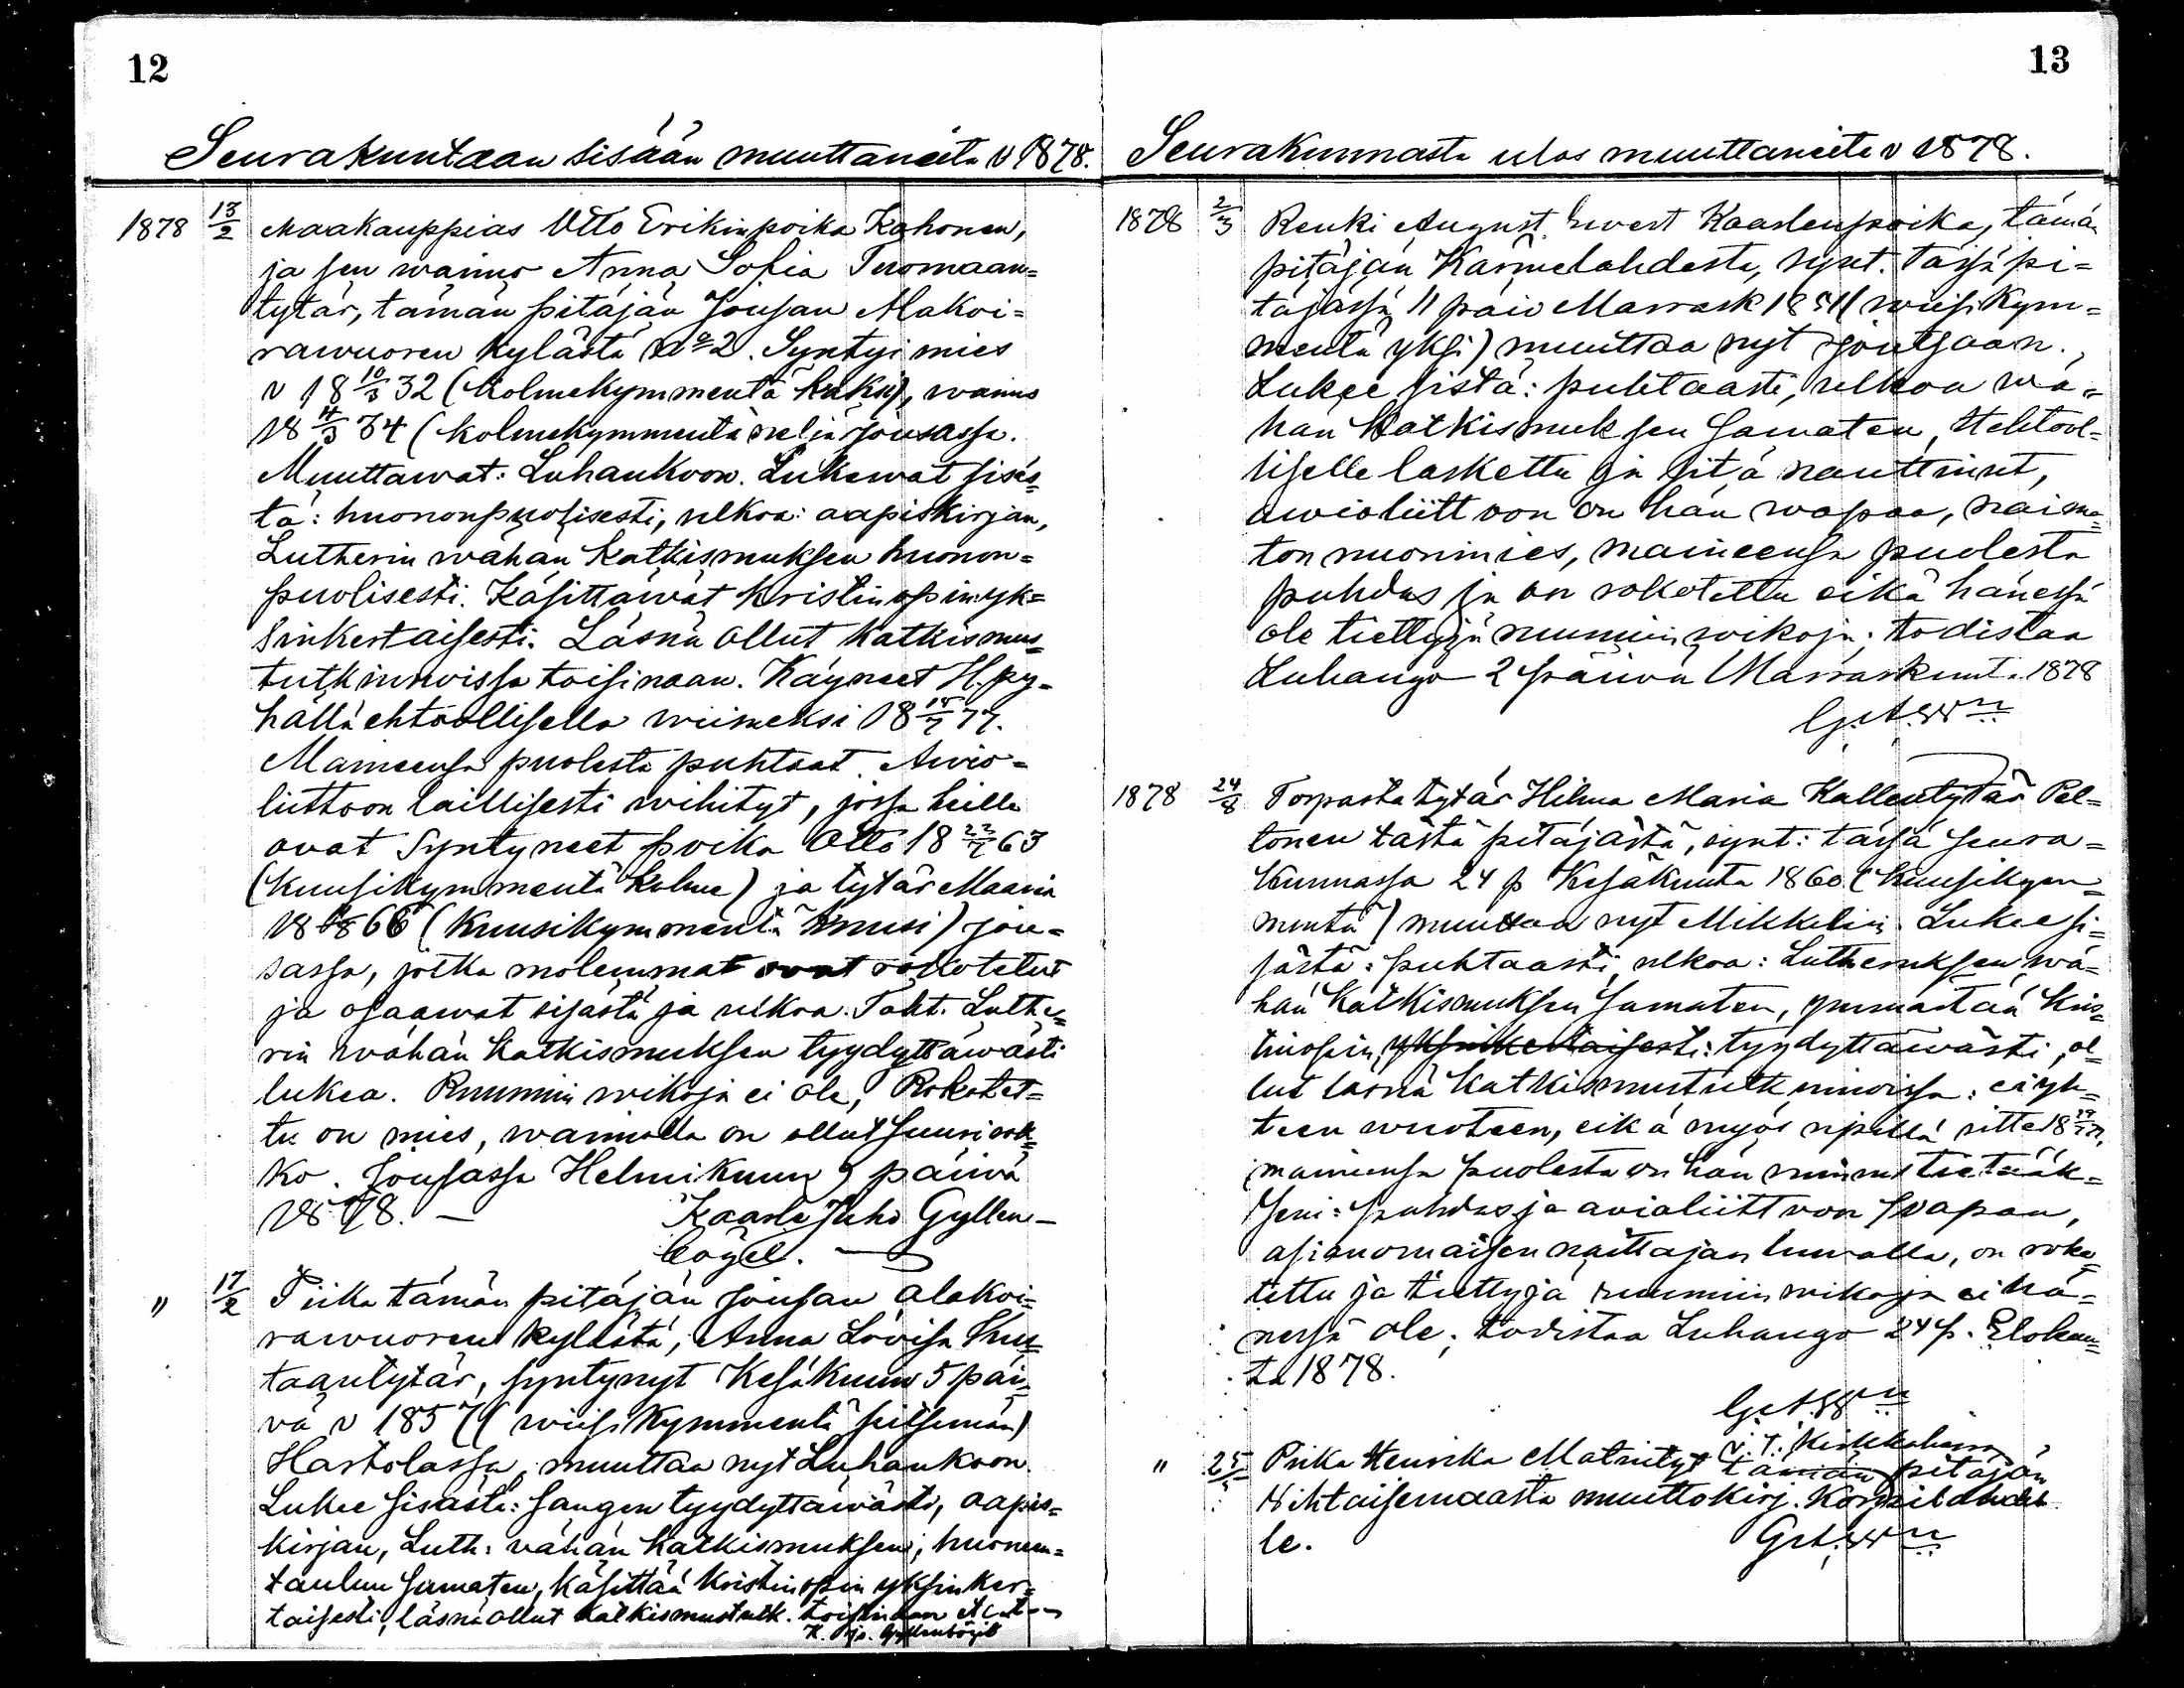 12
Seurakuntaan sisään muuttaneita v 1878.
1878 13/2 Maakauppias Otto Erikinpoika Kahonen,
ja sen waimo Anna Sofia Tuomaan=
tytär, tämän pitäjän Joutsan Alakoi=
rawuoren kylästä No 2. Syntyi mies
v 18 10/3 32 (kolmekymmentä kaksi), waimo
18 4/3 34 (kolmekymmentä neljä Joutsassa.
Muuttawat: Luhankoon. Lukewat sisäs=
tä: huononpuolisesti, ulkoa: aapiskirjan,
Lutherin wähän katkismuksen huonon=
puolisesti. Käsittäwät kristinopin yk=
sinkertaisesti. Läsnä ollut katkismus=
tutkinnoissa toisinaan. Käyneet H. py=
hällä ehtoollisella wiimeksi 18 15/7 77.
Maineensa puolesta puhtaat. Awio=
liittoon laillisesti wihityt, jossa heille
ovat Syntyneet poika Otto 18 22/7 63
(kuusikymmentä kolme) ja tytär Maaria
18 66 (kuusikymmentä kuusi) Jou=
sassa, jotka molemmat ovat rokotetut
ja osaawat sisästä ja ulkoa Toht. Luthe=
rin wähän katkismuksen tyydyttäwästi
lukea. Ruumiin wikoja ei ole, Rokotet=
tu on mies, waimolla on ollut suuri rok=
ko. Jousassa Helmikuun 9 päiwä
1878. — Kaarle Juho Gyllen-
bögel.
" 17/2 Piika tämän pitäjän Jousan alakoi=
rawuoren kylästä, Anna Lovisa
taantytär, syntynyt Kesäkuun 5 päi=
vä v 1857 (wiisikymmentä seitsemän)
Hartolassa, muuttaa nyt Luhankoon.
Lukee sisästä: sangen tyydyttäwästi, aapis=
kirjan, Luth: vähän katkismuksen; huoneen=
taulun samaten, käsittää kristinopin yksinker=
taisesti, läsnä ollut katkismustutk. toisinaan
K. J. Gyllenbögel
13
Seurakunnasta ulos muuttaneita v 1878.
1878 2/3 Renki August Ewert Kaarlenpoika, tämän
pitäjän Kärmelahdesta, synt. tässä pi=
täjässä 11 päiv Marrask 1851 (wiisikym=
mentä yksi) muuttaa nyt Joutsaan.
Lukee sistä: puhtaasti, ulkoa wä=
hän Katkismuksen samaten, Ehtool=
liselle laskettu ja sitä nauttinut,
awioliittoon on hän wapaa, naima=
ton nuorimies, maineensa puolesta
puhdas ja on rokotettu eikä hänessä
ole tiettyjä ruumiin wikoja; todistaa
Luhango 2 päiwä Marraskuuta 1878
1878 24/8 Torparintytär Hilma Maria Kallentytär Pel=
tonen tästä pitäjästä, synt: tässä seura=
kunnassa 24 p Kesäkuuta 1860 (kuusikym=
mentä) muuttaa nyt Mikkeliin. Lukee si=
sästä: puhtaasti, ulkoa: Lutheruksen wä=
hän Katkismuksen samaten, ymmärtää kris=
tinopin yksinkertaisesti: tyydyttäwästi, ol=
lut läsnä katkismustutkinnoissa: ei yh=
teen wuoteen, eikä myös ripillä sitte 18
maineensa puolesta on hän minun tietääk=
seni: puhdas ja avioliittoon wapaa,
asianomaisen naittajan luwalla, on roko=
tettu ja tiettyjä ruumiin wikoja ei hä=
nessä ole; todistaa Luhango 24 p. Elokuu=
ta 1878.
v. t. Kirkkoherra
" 25 Piika Henrika Matintyt tämän pitäjän
muuttokirj. Korpilahdel
le.